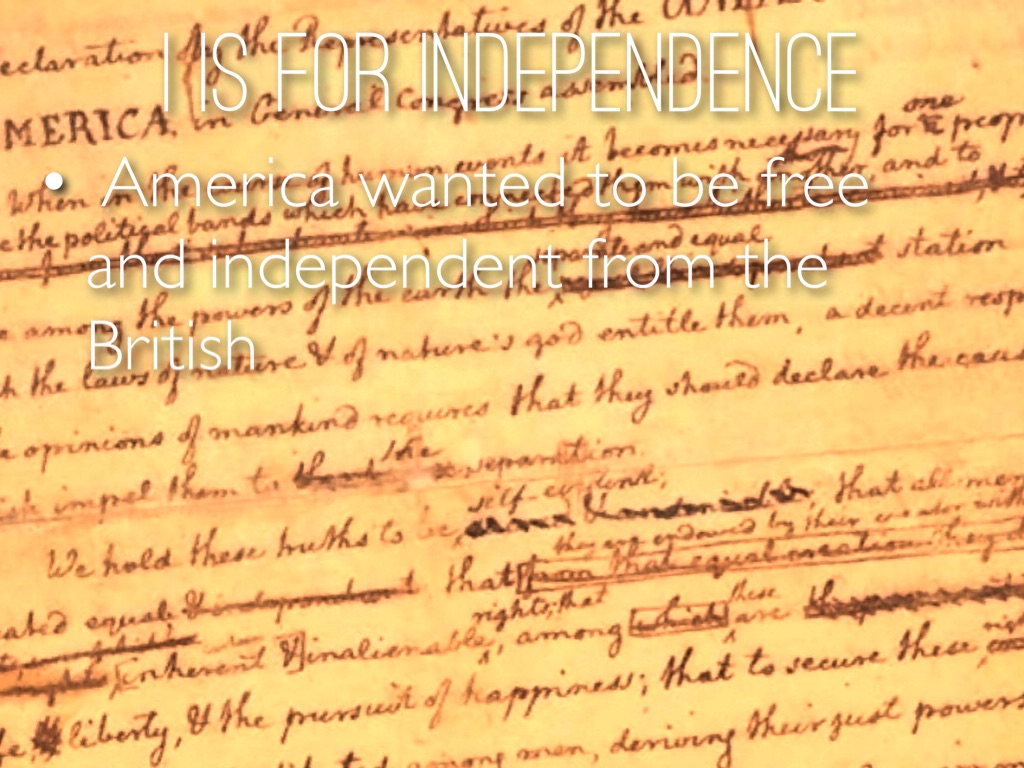 I IS FOR INDEPENDENCE
• America wanted to be free
and independent from the
British
eclaration of the Representatives of the
MERICA, in General Congress assembled.
one
When in human events it becomes necessary for peop
and to
the political bands which
separate and equal
station
among the powers of the earth the
the laws of nature & of nature's god entitle them, a decent resp
opinions of mankind requires that they should declare the caus
the
impel them to separation.
self-evident;
We hold these truths to be that all men
they are endowed by their creator with
ated equal & independent that from that equal creation they d
rights; that these
inherent & inalienable, among which are
that to secure these
liberty, & the pursuit of happiness; that to secure these
among men, deriving their just powers